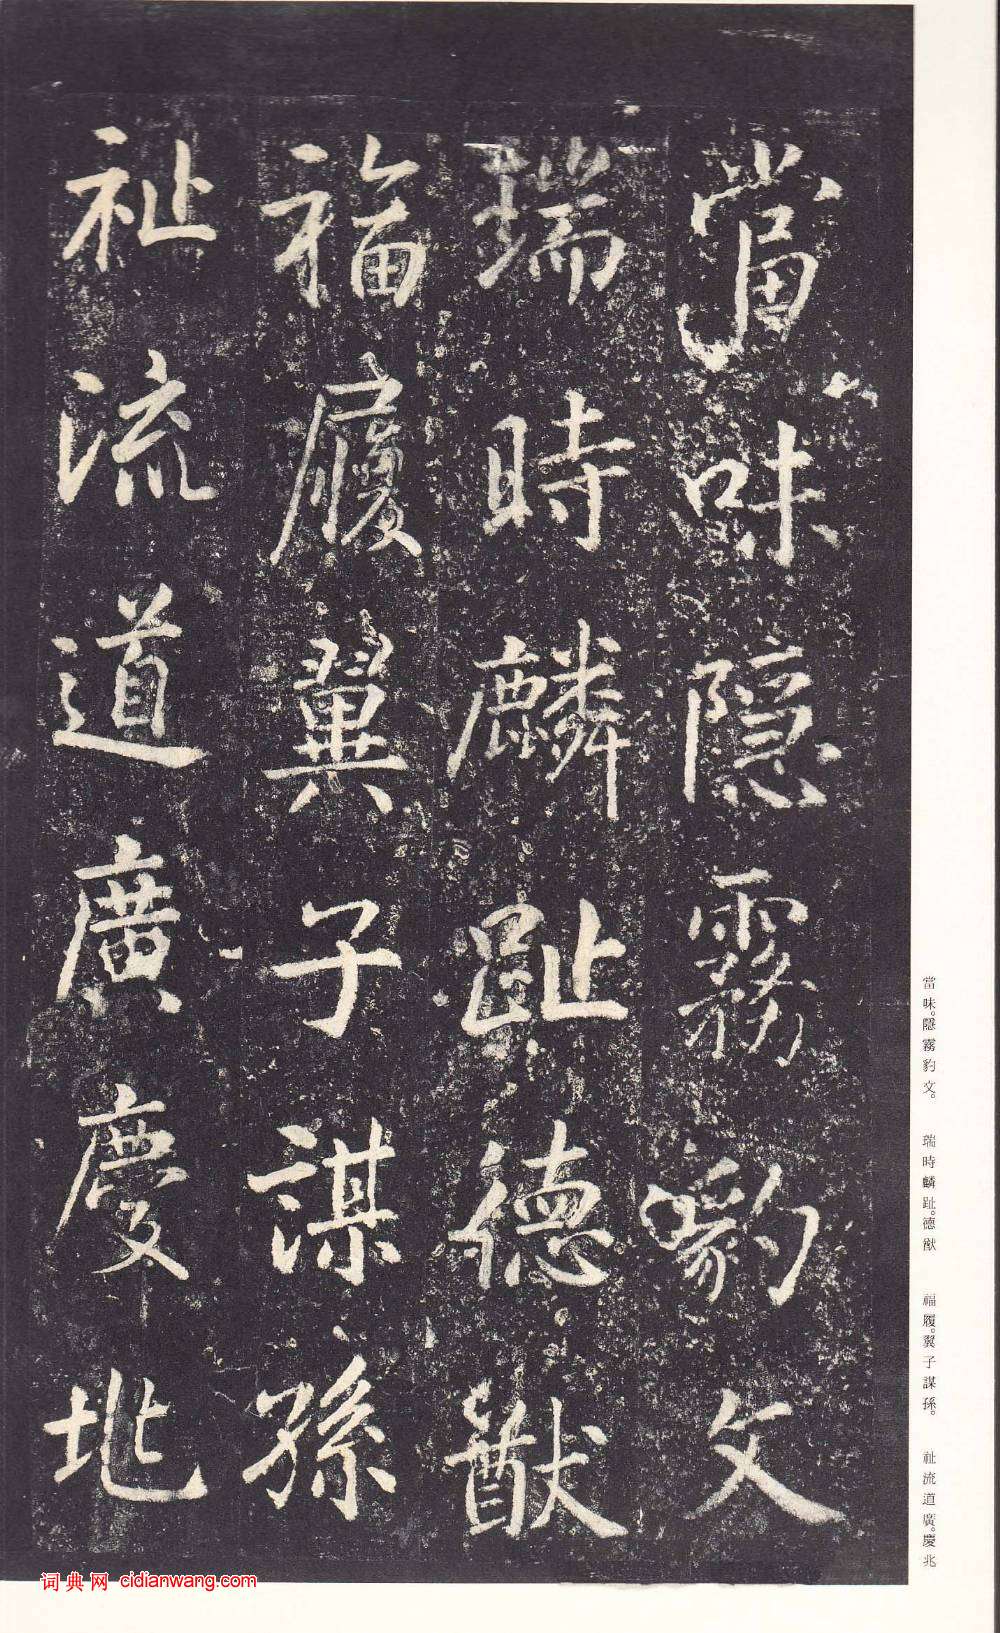 當味隱霧豹文
瑞時麟趾德猷
福履翼子謀孫
祉流道廣慶兆
當味。隱霧豹文。 瑞時麟趾。德猷 福履。翼子謀孫。 祉流道廣。慶兆
词典网 cidianwang.com